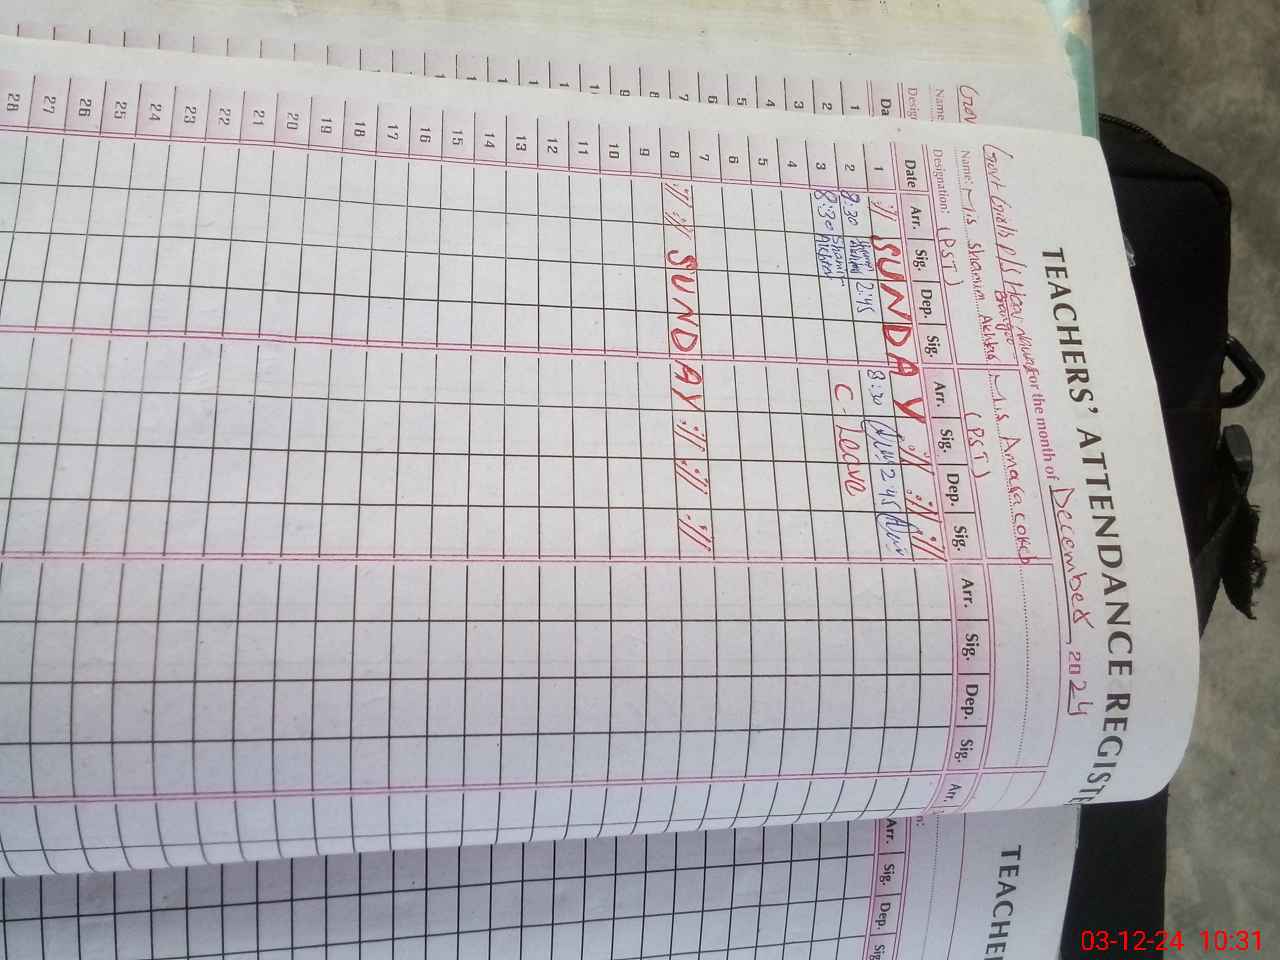 TEACHERS' ATTENDANCE REGISTE
Govt Girls P/S for the month of December 2024
Name: Mis Shamim Akhtar Mis Amara
Designation: (PST) (PST)
Date Arr. Sig. Dep. Sig. Arr. Sig. Dep. Sig. Arr. Sig. Dep. Sig. Arr.
1 SUNDAY
2 8:30 2:45 8:30 2 45
3 8:30 Shamim Akhtar C-Leave
4
5
6
7
8 SUNDAY
9
10
11
12
13
14
15
16
17
18
19
20
21
22
23
24
25
26
27
28
Gov
Name
Desig
Da
1
2
3
4
5
6
7
8
9
TEACHE
n:
Arr. Sig. Dep. Sig
03-12-24 10:31